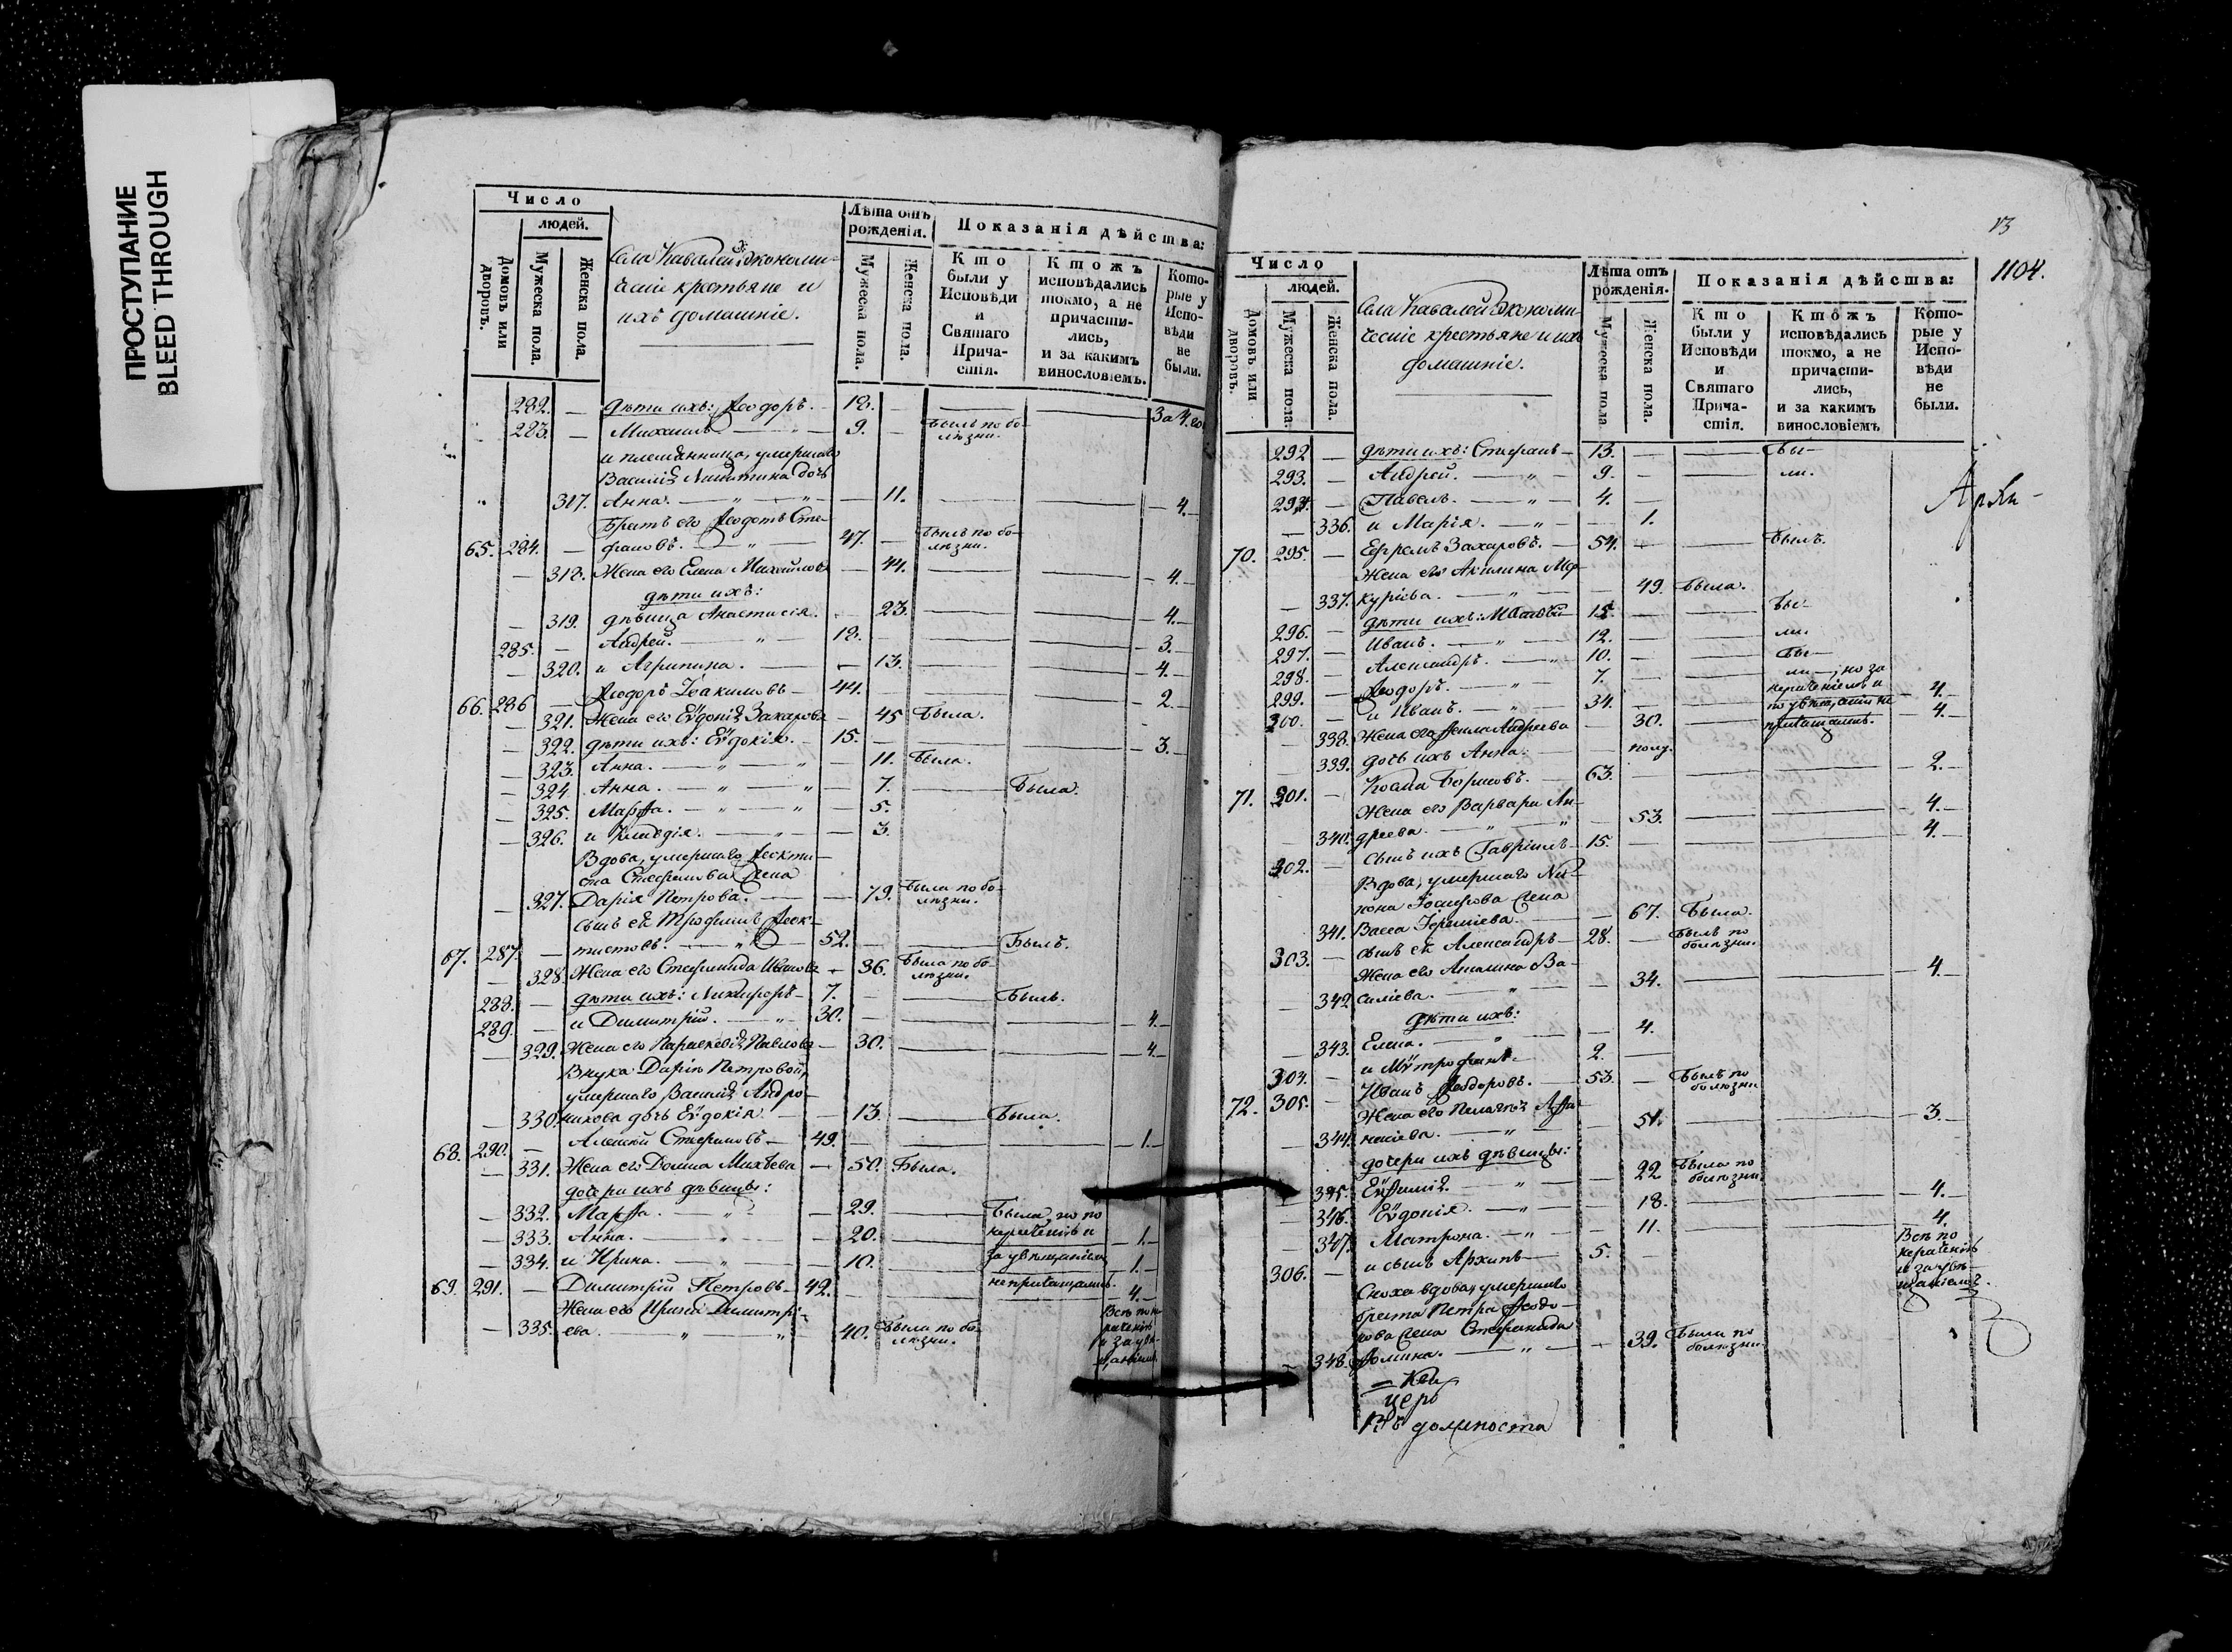 ПРОСТУПАНИЕ
BLEED THROUGH
Число
людей.
Домовъ или дворовъ.
Мужеска пола.
Женска пола.
Села Кавалей Экономи-
ческіе крестьяне и
ихъ домашніе.
Лѣта отъ рожденія.
Мужеска пола.
Женска пола.
Показанія дѣйства:
Кто были у Исповѣди и Святаго Причастія.
Ктожъ исповѣдались токмо, а не причастились, и за какимъ винословіемъ.
Которые у Исповѣди не были.
282. — дѣти ихъ: Ѳеодоръ. — 18. — За 4. го
283. — Михаилъ — 9. — былъ по болѣзни.
и племянница, умершаго
Василія Никитина дочь
317. Анна. — 11. — 4.
Братъ его Ѳедотъ Сте-
65. 284. — фановъ. — 47. — былъ по болѣзни.
— 318. Жена его Елена Михайлова — 44. — 4.
дѣти ихъ:
— 319. дѣвица Анастасія. — 23. — 4.
285. — Андрей. — 18. — 3.
— 320. и Агрипина. — 13. — 4.
66. 286 — Ѳеодоръ Іоакимовъ — 44. — 2.
— 321. Жена его Евдокія Захарова — 45 Была.
— 322. дѣти ихъ: Евдокія. — 15. — 3.
— 323. Анна. — 11. Была.
— 324. Анна. — 7. — Была.
— 325. Марѳа. — 5.
— 326. и Клавдія. — 3.
Вдова, умершаго Ѳеокти-
ста Стефанова жена
— 327. Дарія Петрова. — 79. Была по болѣзни.
сынъ ея Трофимъ Ѳеок-
67. 287. — тистовъ. — 52. — Былъ.
— 328. Жена его Стефанида Иванова — 36. Была по болѣзни.
288. — дѣти ихъ: Никифоръ — 7. — Былъ.
289. — и Димитрій. — 30. — 4.
— 329. Жена его Параскевія Павлова — 30. — 4.
Внука Даріи Петровой,
умершаго Василія Андро-
— 330. никова дочь Евдокія — 13. — Была.
68. 290. — Алексій Стефановъ — 49. — 1.
— 331. Жена его Домна Михѣева — 50. Была.
дочери ихъ дѣвицы:
— 332. Марѳа. — 29. — Была, но по
— 333. Анна. — 20. — нераченію и — 1.
— 334. и Ирина. — 10. — за увѣщаніемъ — 1.
69. 291. — Димитрій Петровъ — 42. — не пріобщались. — 4.
Жена его Ирина Димитрі-
— 335. ева. — 40. Была по болѣзни. Всѣ по нераченію и за увѣщаніемъ.
13
1104.
Число
людей.
Домовъ или дворовъ.
Мужеска пола
Женска пола.
Села Кавалей Экономи-
ческіе крестьяне и ихъ
домашніе.
Лѣта отъ рожденія.
Мужеска пола
Женска пола.
Показанія дѣйства:
Кто были у Исповѣди и Святаго Причастія.
Ктожъ исповѣдались токмо, а не причастились, и за какимъ винословіемъ
Которые у Исповѣди не были.
292 — дѣти ихъ: Стефанъ — 13. — Бы-
293. — Андрей. — 9. — ли.
294. — Павелъ. — 4. —
— 336. и Марія. — 1.
70. 295. — Ефремъ Захаровъ. — 54. — Былъ.
Жена его Акилина Мер-
— 337. куріева. — 49. Была.
296. — дѣти ихъ: Матвѣй — 15. — Бы-
297. — Иванъ. — 12. — ли.
298. — Александръ. — 10. — Бы-
299. — Ѳеодоръ. — 7. — ли —, но за
300. — и Иванъ. — 34. — нераченіемъ и — 4.
— 338. Жена его Ѳекла Андреева — 30. — 4.
— 339. дочь ихъ Анна. — полу.
71. 301. — Косма Борисовъ. — 63. — 2.
Жена его Варвара Ан-
— 340. дреева. — 53. — 4.
302. — сынъ ихъ Гавріилъ — 15. — 4.
Вдова, умершаго Ни-
кона Іосифова жена
341. Васса Іереміева. — 67. Была.
303. — сынъ ея Александръ — 28. — Былъ по болѣзни.
Жена его Акилина Ва-
— 342 силіева. — 34. — 4.
дѣти ихъ:
— 343. Елена. — 4.
304. — и Митрофанъ. — 2. —
72. 305. — Иванъ Ѳеодоровъ. — 53. — Былъ по болѣзни
Жена его Пелагія Аѳа-
— 344. насіева. — 51. — 3.
дочери ихъ дѣвицы:
— 345. Евѳимія. — 22 Была по болѣзни
— 346. Евдокія. — 18. — 4.
— 347. Матрона. — 11. — 4.
306. — и сынъ Архипъ — 5. — Всѣ по нераченію и за увѣщаніемъ.
Сноха вдова, умершаго
брата Петра Ѳеодо-
рова жена Стефанида
— 348. Ѳомина. — 39. Была по болѣзни
церо
Въ должности